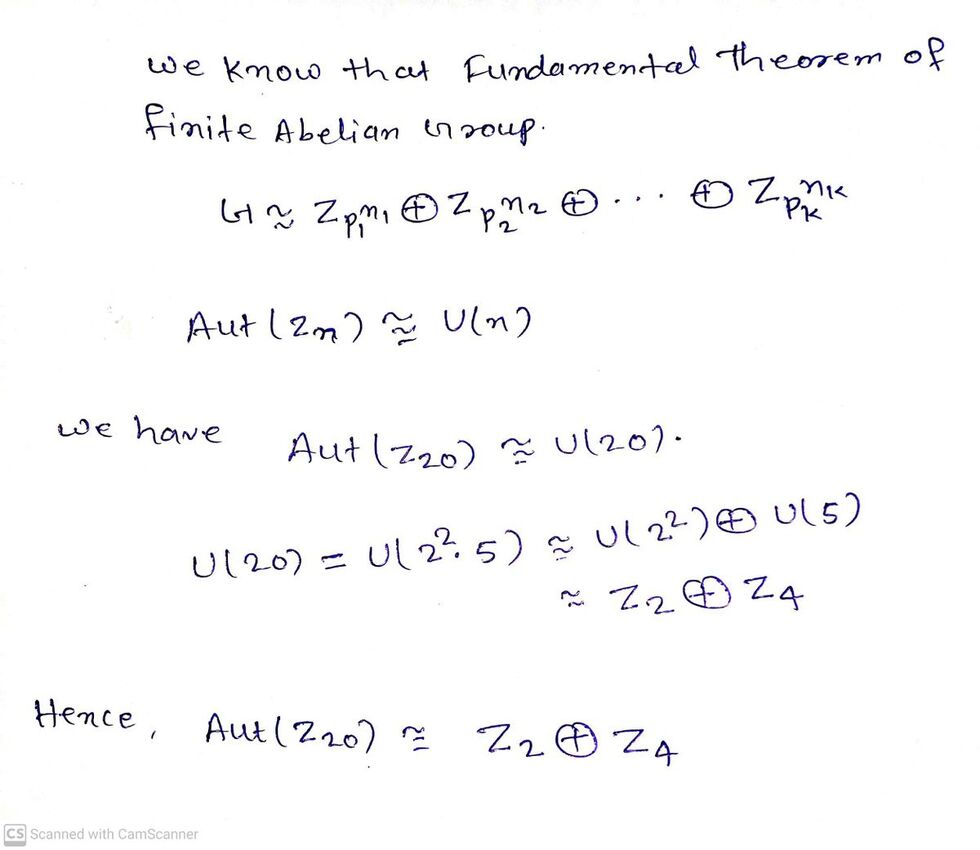 We know that Fundamental theorem of
finite Abelian Group.
G ≅ Z_{p_1^{n_1}} ⊕ Z_{p_2^{n_2}} ⊕ ... ⊕ Z_{p_k^{n_k}}
Aut(Z_n) ≅ U(n)
we have Aut(Z_{20}) ≅ U(20).
U(20) = U(2^2·5) ≅ U(2^2) ⊕ U(5)
≅ Z_2 ⊕ Z_4
Hence, Aut(Z_{20}) ≅ Z_2 ⊕ Z_4
CS Scanned with CamScanner